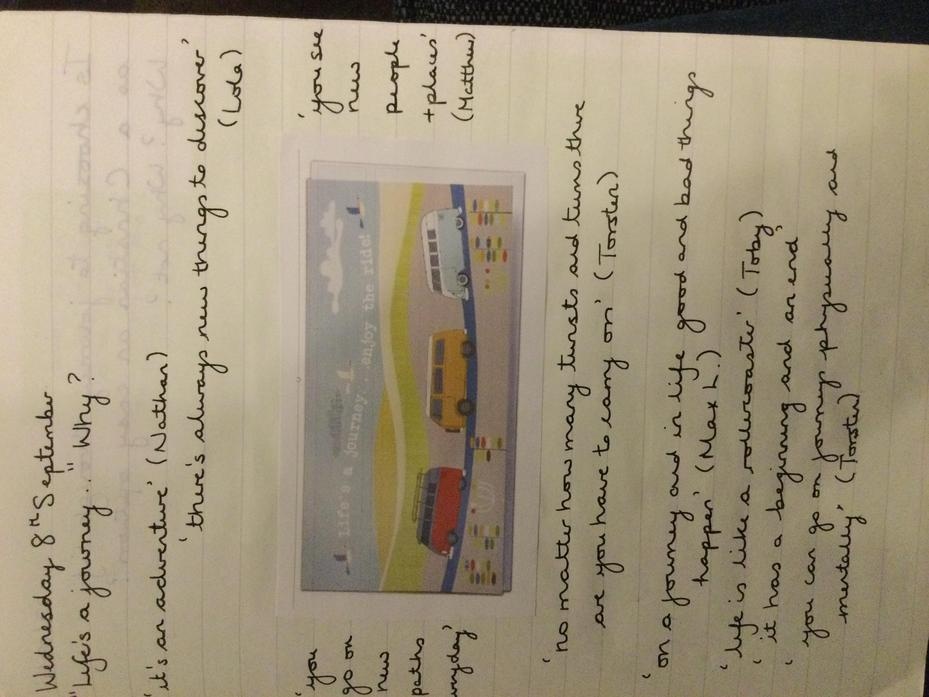 Wednesday 8th September
"Life's a journey..." Why?
'it's an adventure' (Nathan)
'there's always new things to discover'
(Lola)
'you
go on
new
paths
everyday'
Life's a journey...enjoy the ride!
'you see
new
people
+places'
(Matthew)
'no matter how many twists and turns there
are you have to carry on' (Torsten)
'on a journey and in life good and bad things
happen' (Max L.)
'life is like a rollercoaster' (Toby)
'it has a beginning and an end'
'you can go on journeys physically and
mentally' (Torsten)